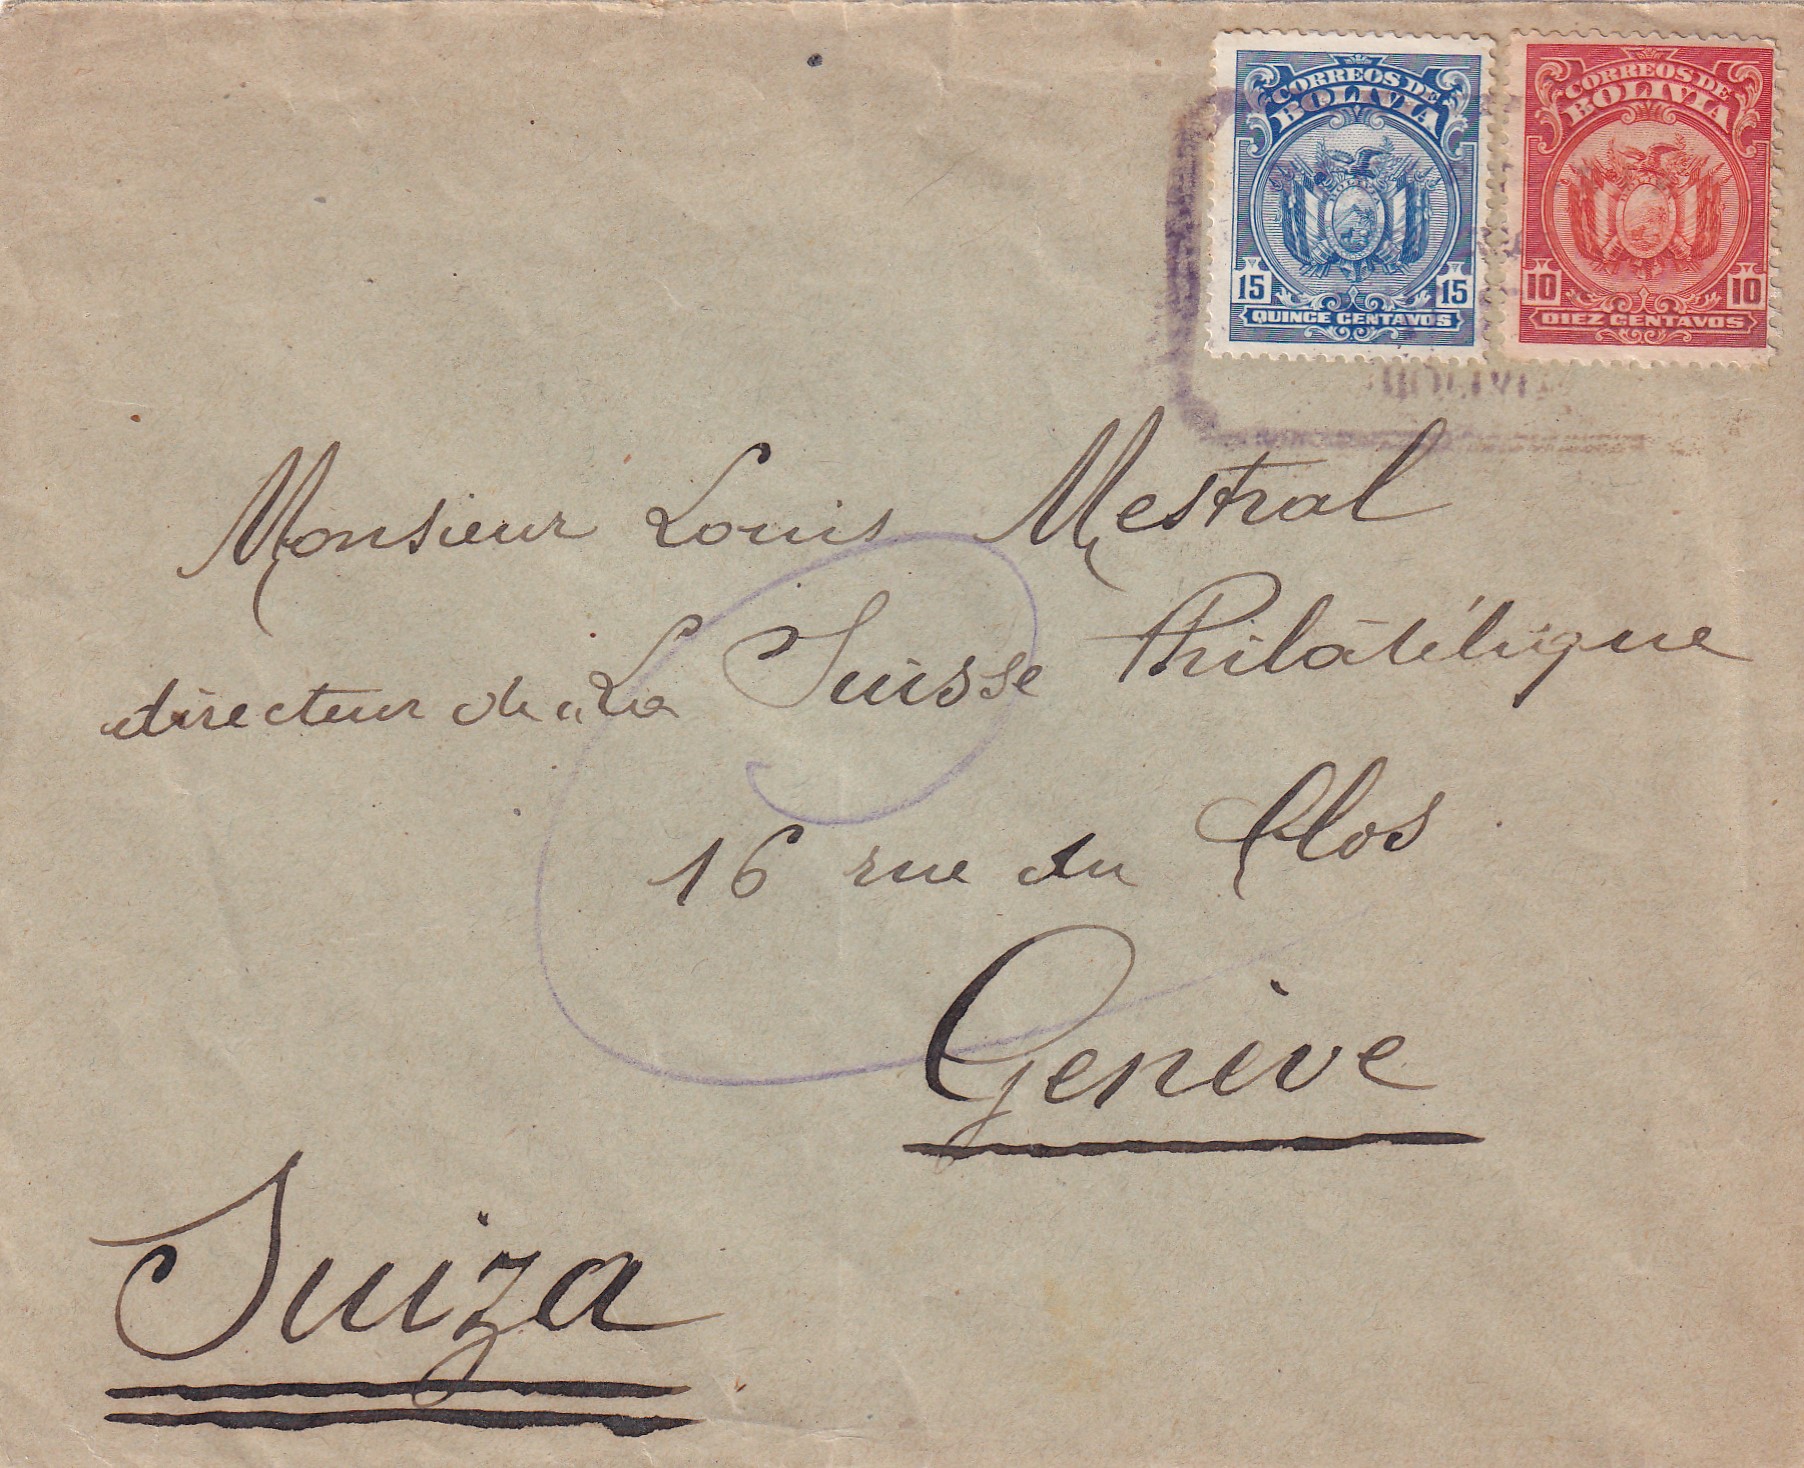 CORREOS DE
BOLIVIA
BOLIVIA
15 15
QUINCE CENTAVOS
CORREOS DE
BOLIVIA
10 10
DIEZ CENTAVOS
Monsieur Louis Mestral
directeur de „La Suisse Philatélique
16 rue du Clos
Genève
Suiza